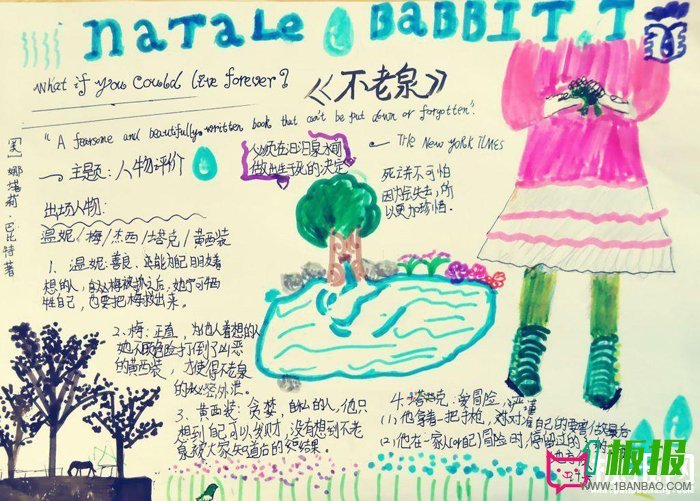 Natale Babbitt
What if you could live forever?
《不老泉》
"A fearsome and beautifully written book that can't be put down or forgotten."
THE NEW YORK TIMES
主题：人物评价
必须在汩汩泉水前
做出生于死的决定
死并不可怕
因为失去，所
以更加珍惜。
[美]娜塔莉·巴比特 著
出场人物：
温妮/梅/杰西/塔克/黄西装
1、温妮：善良
想的人，
牲自己，也要把梅救出来。
2、梅：正直，为他人着想的人
她不顾危险打倒了凶恶
的黄西装，才使得不老泉
的秘密外泄。
3、黄西装：贪婪，自私的人，他只
想到自己可以发财，没有想到不老
泉被人家知道后的结果。
4、塔克：爱冒险
(1)他拿着一把手枪，对
(2)他在一家
板报
WWW.1BANBAO.COM